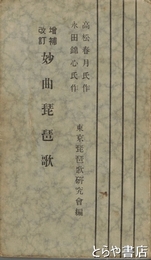 高松春月氏作
永田錦心氏作
増補
改訂
妙曲琵琶歌
東京琵琶歌研究會編
とらや書店